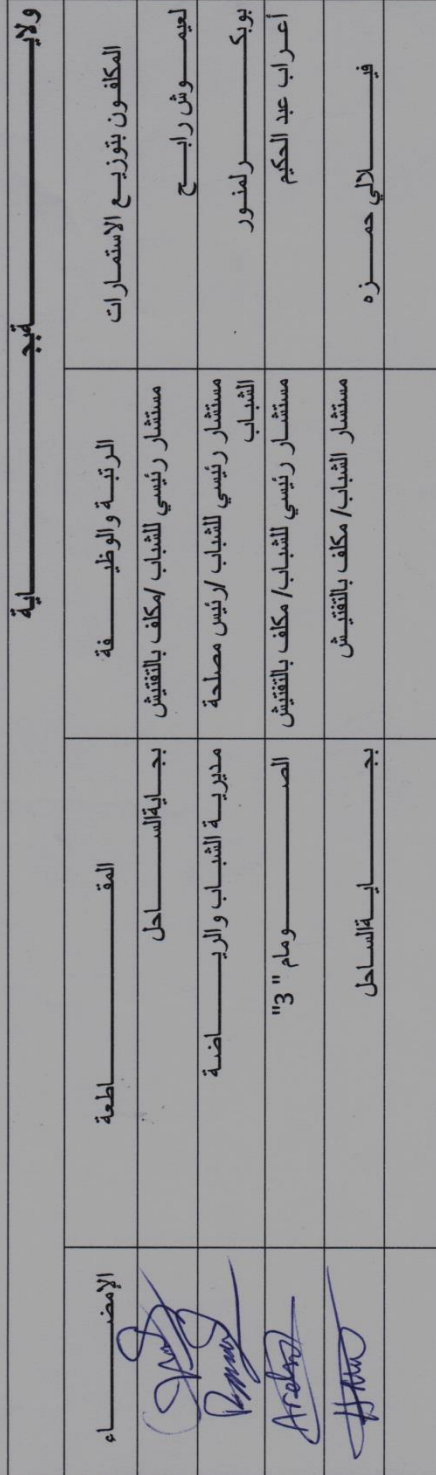 ولايـــــة بجـــــاية
المكلفون بتوزيع الاستمارات	الرتبة والوظيفة	المقاطعة	الإمضاء
لعيموش رابح	مستشار رئيسي للشباب /مكلف بالتفتيش	بجاية الساحل
بوبكر لمنور	مستشار رئيسي للشباب /رئيس مصلحة الشباب	مديرية الشباب والرياضة
أعراب عبد الحكيم	مستشار رئيسي للشباب/ مكلف بالتفتيش	الصومام " 3"
فيلالي حمزه	مستشار الشباب/ مكلف بالتفتيش	بجاية الساحل